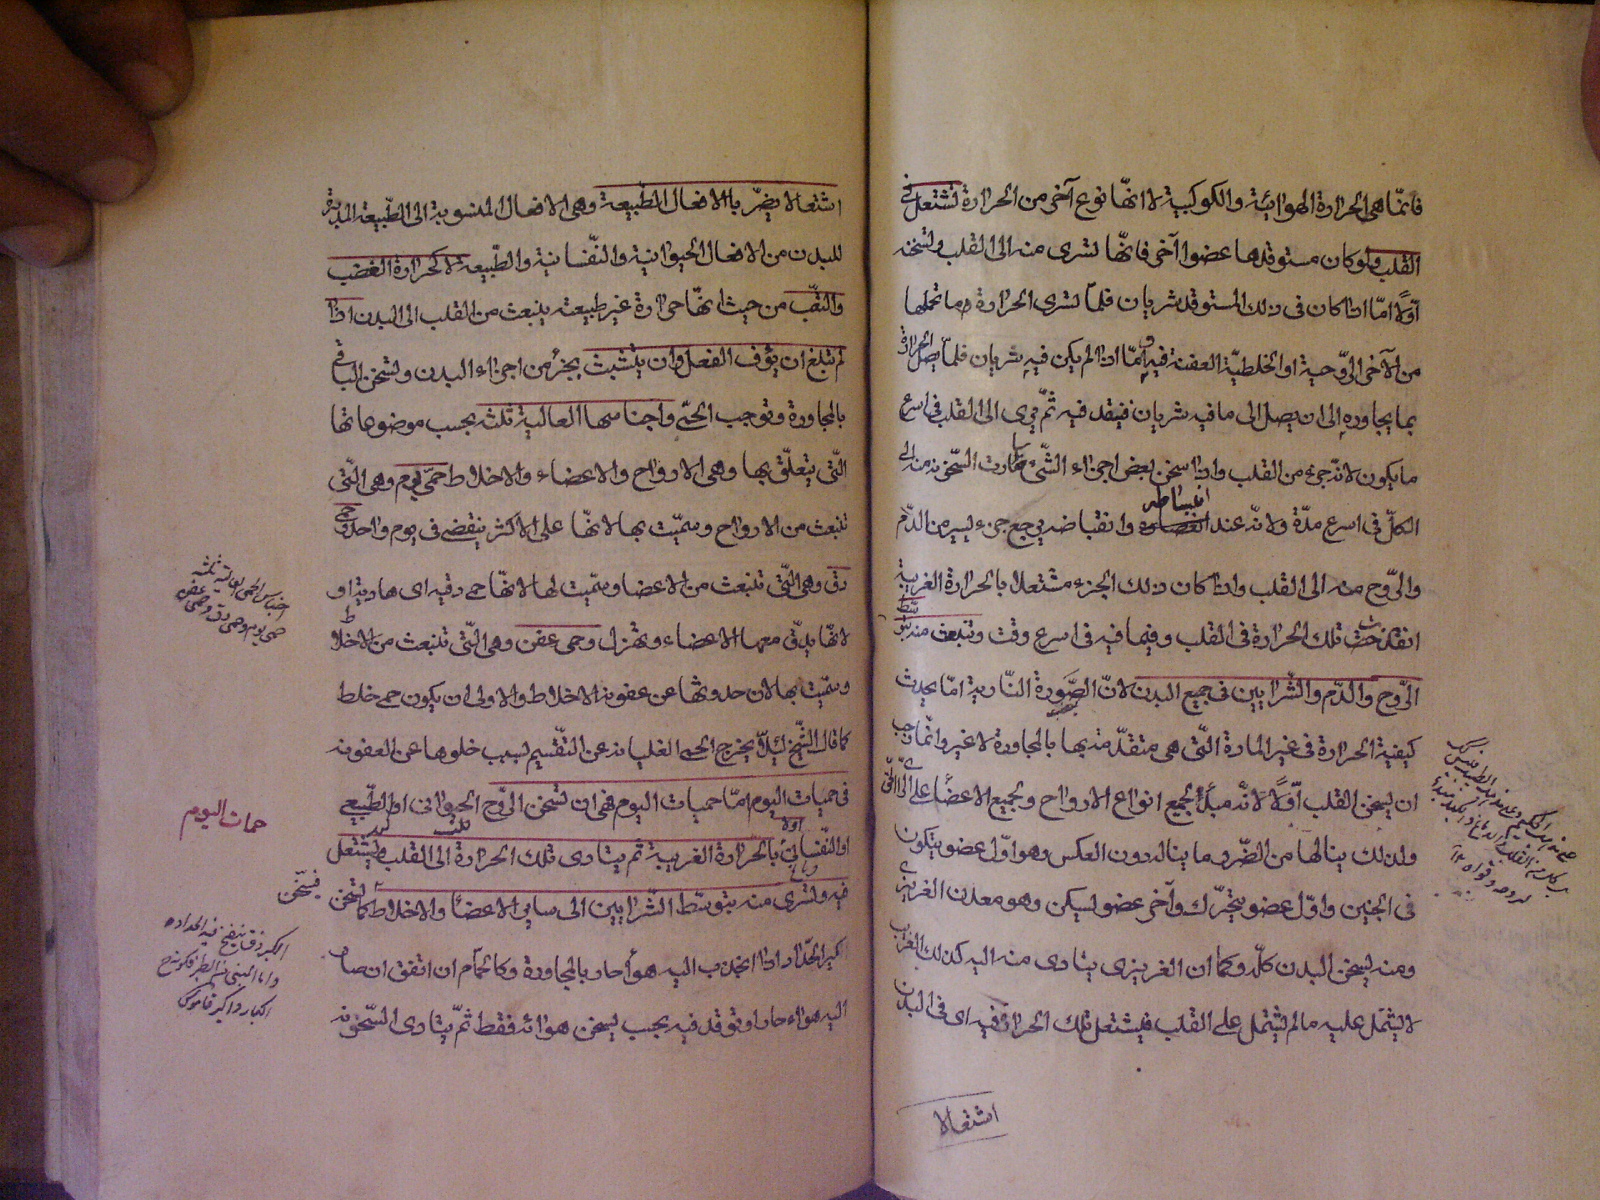 فانما هى الحرارة الهوائية والكوكبية لا انها نوع آخر من الحرارة تشتعل فى
القلب ولو كان مستوقدها عضوا آخر فانها تسرى منه الى القلب وتسخنه
اولا اما اذا كان فى ذلك المستوقد شريان فلما تسرى الحرارة
من الآخر الروحية او الخلطية العفنة فيه واما اذا لم يكن فيه شريان فلما يصل الحرارة
بما يجاوره الى ان يصل الى ما فيه شريان فينفذ فيه ثم يجرى الى القلب فى اسرع
ما يكون لانه جزء من القلب واذا سخن بعض اجزاء الشئ صارت السخونة منه الى
الكل فى اسرع مدة ولانه عند انبساطه وانقباضه يرجع جزء يسير من الدم
والروح منه الى القلب واذا كان ذلك الجزء مشتعلا بالحرارة الغريبة
تلك الحرارة فى القلب وفيما فيه فى اسرع وقت وتنبعث منه بتوسط
الروح والدم والشرايين فى جميع البدن لان الصورة النارية انما يحدث
كيفية الحرارة فى غير المادة التى هى متقدمة بها بالمجاورة لا غير وانما وجب
ان يسخن القلب اولا لانه مبدأ لجميع انواع الارواح ولجميع الاعضاء على
ولذلك ينالها من الضرر ما يناله دون العكس وهو اول عضو يتكون
فى الجنين واول عضو يتحرك وآخر عضو يسكن وهو معدن الغريزى
ومنه يسخن البدن كله وكما ان الغريزى يتادى منه اليه كذلك الغريب
لا يشتمل عليه ما لم يشتمل على القلب فيشتعل تلك الحرارة فيه اى فى البدن
اشتعالا
اشتعالا يضر بالافعال الطبيعة وهى الافعال المنسوبة الى الطبيعة المدبرة
للبدن من الافعال الحيوانية والنفسانية والطبيعة لا كحرارة الغضب
والتعب من حيث انها حرارة غير طبيعة ينبعث من القلب الى البدن اذا
لم تبلغ ان يؤف الفعل وان يتشبث بجزء من اجزاء البدن وتسخن الباقى
بالمجاورة وتوجب الحمى واجناسها العالية ثلثة بحسب موضوعاتها
التى يتعلق بها وهى الارواح والاعضاء والاخلاط حمى يوم وهى التى
تنبعث من الارواح وسميت بها لانها على الاكثر ينقضى فى يوم واحد وحمى
دق وهى التى تنبعث من الاعضا وسميت لها لانها حمى دقيه اى هادية او
لانها يدق معها الاعضاء ويهزل وحمى عفن وهى التى تنبعث من الاخلاط
وسميت بها لان حدوثها عن عفونة الاخلاط والاولى ان يكون حمى خلط
كما قال الشيخ لئلا يخرج الحمى الغليانية عن التقسيم بسبب خلوها عن العفونة
فى حميات اليوم اما حميات اليوم فهى ان تسخن الروح الحيوانى او الطبيعى
او النفسانى اولا بالحرارة الغريبة ثم يتادى تلك الحرارة الى القلب فيشتعل
فيه وتسرى منه بتوسط الشرايين الى ساير الاعضا والاخلاط كما تسخن
كير الحداد اذا انجذب اليه هوأ حار بالمجاورة وكالحمام ان اتفق ان صار
اليه هواء حار او توقد فيه بحيث يسخن هوائه فقط ثم يتادى السخونة
اجناس الحمى العالية ثلثة
حمى يوم وحمى دق وحمى عفن
حمات اليوم
فيسخن
الكير زق ينفخ فيه الحداد